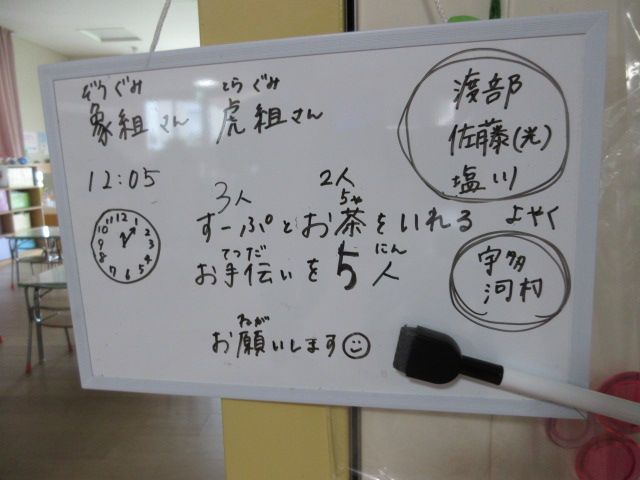 ぞうぐみ とらぐみ
象組さん 虎組さん
12:05
3人 2人
ちゃ
すーぷとお茶をいれる
てつだ にん
お手伝いを5人
ねが
お願いします
渡部
佐藤(光)
塩川
よやく
宇多
河村
12 1 2 3 4 5 6 7 8 9 10 11